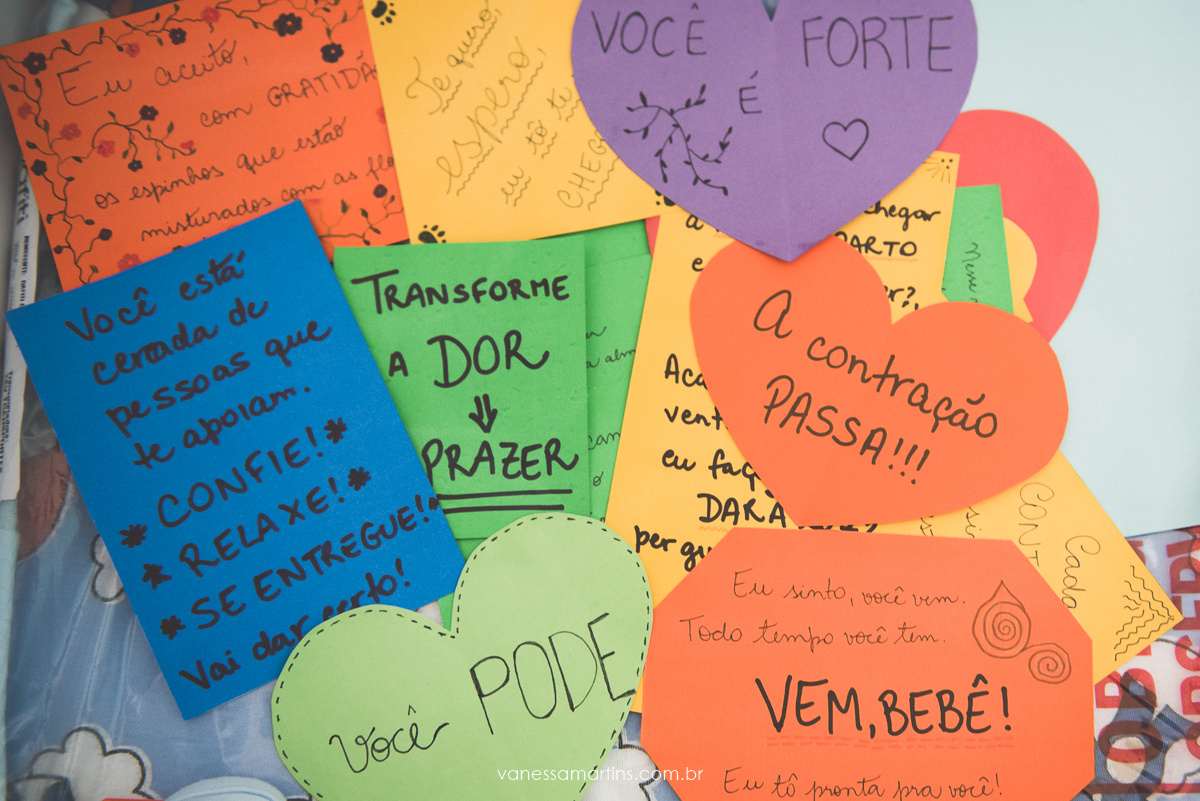 Eu aceito,
com GRATIDÃ
os espinhos que estão
misturados com as flo
Te quero,
espero,
eu tô te
CHEG
VOCÊ É FORTE
chegar
PARTO
er?,
Nesse
Você está
cercada de
pessoas que
te apoiam.
* CONFIE! *
* RELAXE! *
* SE ENTREGUE! *
Vai dar certo!
TRANSFORME
A DOR
⇓
PRAZER
Aca
vent
eu faç
DARÁ
pergu
A contração
PASSA!!!
CONT
Cada
Você PODE
Eu sinto, você vem.
Todo tempo você tem.
VEM, BEBÊ!
Eu tô pronta pra você!
vanessamartins.com.br